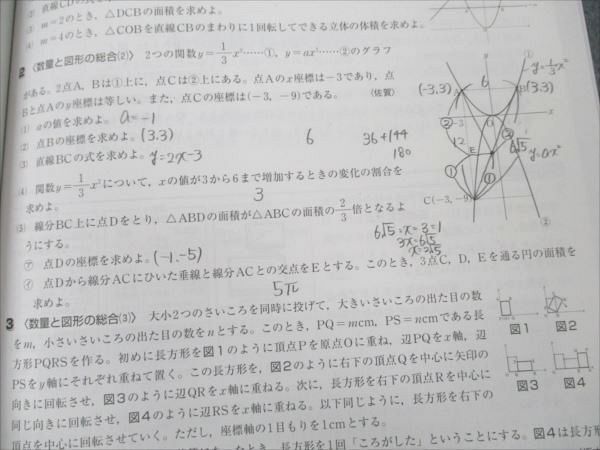 ② 直線CDの式を求めよ。
③ m=2のとき，△DCBの面積を求めよ。
④ m=4のとき，△COBを直線CBのまわりに1回転してできる立体の体積を求めよ。
2 〈数量と図形の総合(2)〉 2つの関数y=1/3x²……①，y=ax²……②のグラフ
がある。2点A，Bは①上に，点Cは②上にある。点Aのx座標は−3であり，点
Bと点Aのy座標は等しい。また，点Cの座標は(−3，−9)である。 〈佐賀〉
(1) aの値を求めよ。 a=-1
(2) 点Bの座標を求めよ。 (3.3)
(3) 直線BCの式を求めよ。 y=2x-3
6 36+144
180
(4) 関数y=1/3x²について，xの値が3から6まで増加するときの変化の割合を
求めよ。 3
(5) 線分BC上に点Dをとり，△ABDの面積が△ABCの面積の2/3倍となるよ
うにする。
㋐ 点Dの座標を求めよ。 (-1,-5)
㋑ 点Dから線分ACにひいた垂線と線分ACとの交点をEとする。このとき，3点C，D，Eを通る円の面積を
求めよ。 5π
6√5:x=3:1
3x=6√5
x=2√5
y=1/3x²
(-3,3)
A
6
B
(3.3)
①
x
②
-3
12
E
6√5
y=ax²
C(−3，−9)
②
3 〈数量と図形の総合(3)〉 大小2つのさいころを同時に投げて，大きいさいころの出た目の数
をm，小さいさいころの出た目の数をnとする。このとき，PQ=mcm，PS=ncmである長
方形PQRSを作る。初めに長方形を図1のように頂点Pを原点Oに重ね，辺PQをx軸，辺
PSをy軸にそれぞれ重ねて置く。この長方形を，図2のように右下の頂点Qを中心に矢印の
向きに回転させ，図3のように辺QRをx軸に重ねる。次に，長方形を右下の頂点Rを中心に
同じ向きに回転させ，図4のように辺RSをx軸に重ねる。以下同じように，長方形を右下の
頂点を中心に回転させていく。ただし，座標軸の1目もりを1cmとする。
図1 図2
図3 図4
長方形を1回「ころがした」ということにする。図4は長方形